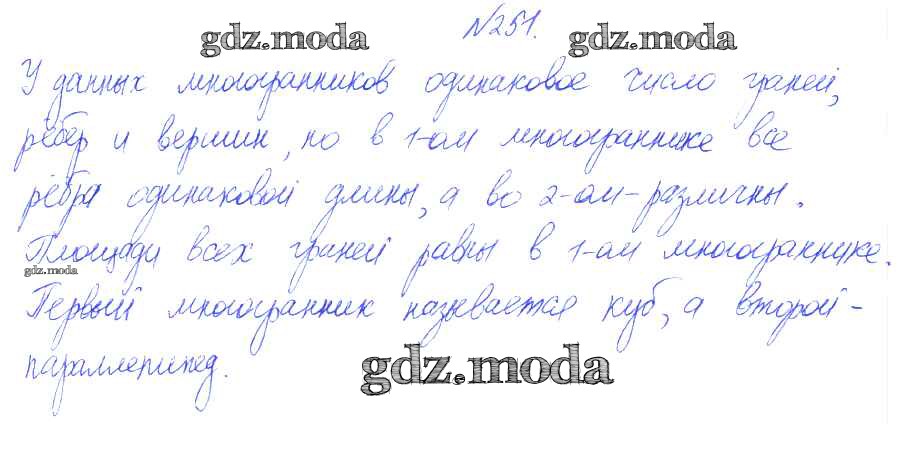 №251.
gdz.moda gdz.moda
У данных многогранников одинаковое число граней,
рёбер и вершин, но в 1-ом многограннике все
рёбра одинаковой длины, а во 2-ом - различны.
Площади всех граней равны в 1-ом многограннике.
gdz.moda
Первый многогранник называется куб, а второй -
параллепипед.
gdz.moda